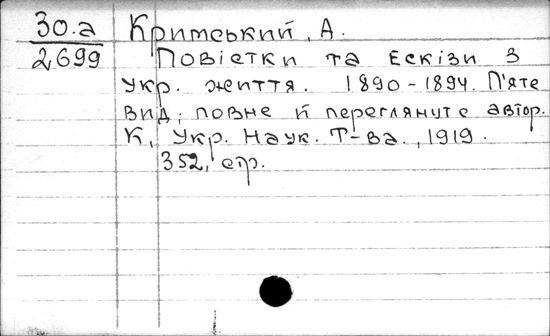 30.а Кримський, А.
2699 Повістки та Ескізи з
укр. життя. 1890-1894. П'яте
вид, повне й переглянуте автор.
К, Укр. Наук. Т-ва., 1919.
352, стр.